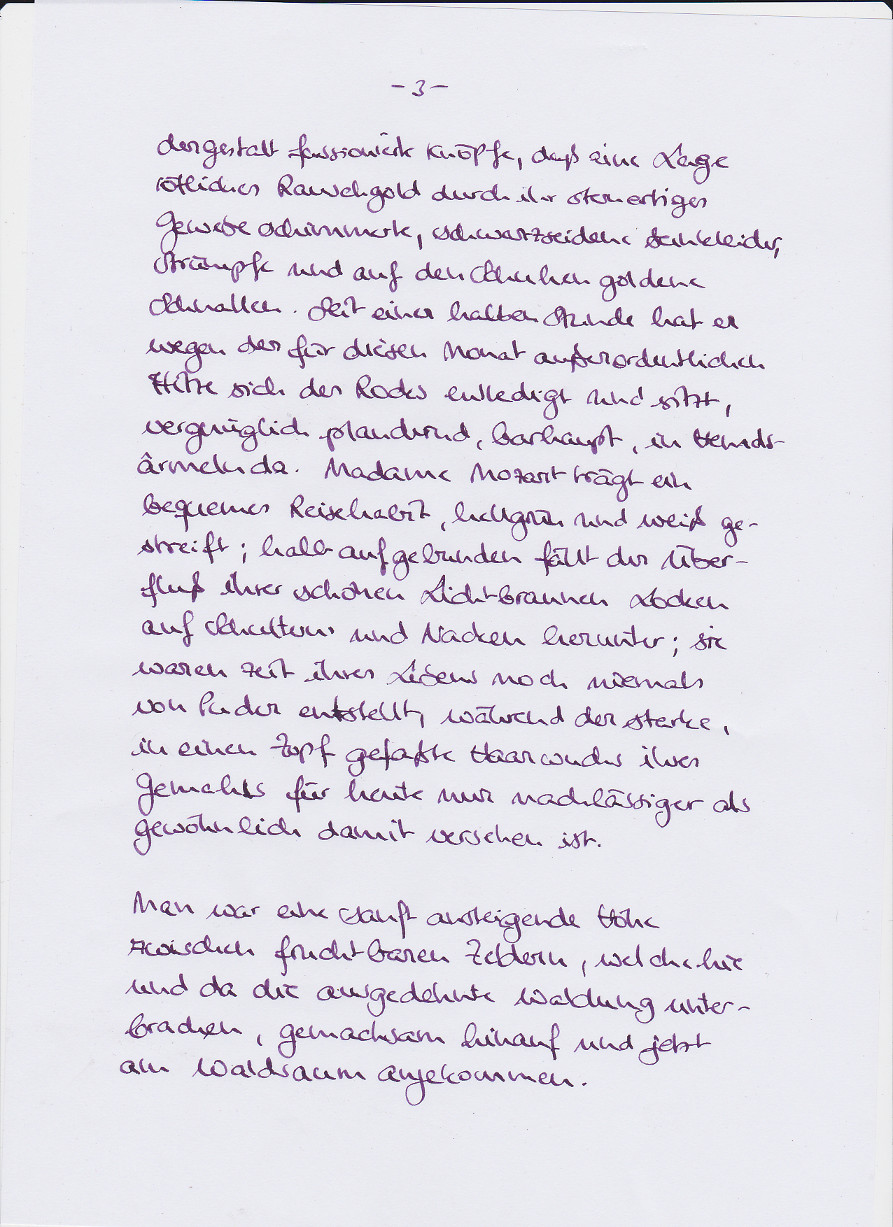 - 3 -
dergestalt fassioniert Knöpfe, daß eine Lage
rötliches Rauschgold durch ihr sternartiges
Gewebe schimmerte, schwarzseidene Beinkleider,
Strümpfe und auf den Schuhen goldene
Schnallen. Seit einer halben Stunde hat er
wegen der für diesen Monat außerordentlichen
Hitze sich des Rocks entledigt und sitzt,
vergnüglich plaudernd, barhaupt, in Hemds-
ärmeln da. Madame Mozart trägt ein
bequemes Reisehabit, hellgrün und weiß ge-
streift; halb aufgebunden fällt der Über-
fluß ihrer schönen Lichtbraunen Locken
auf Schultern und Nacken herunter; sie
waren zeit ihres Lebens noch niemals
von Puder entstellt, während der starke,
in einen Zopf gefaßte Haarwuchs ihres
Gemahls für heute nur nachlässiger als
gewöhnlich damit versehen ist.
Man war eine sanft ansteigende Höhe
zwischen fruchtbaren Feldern, welche hie
und da die ausgedehnte Waldung unter-
brachen, gemachsam hinauf und jetzt
am Waldsaum angekommen.